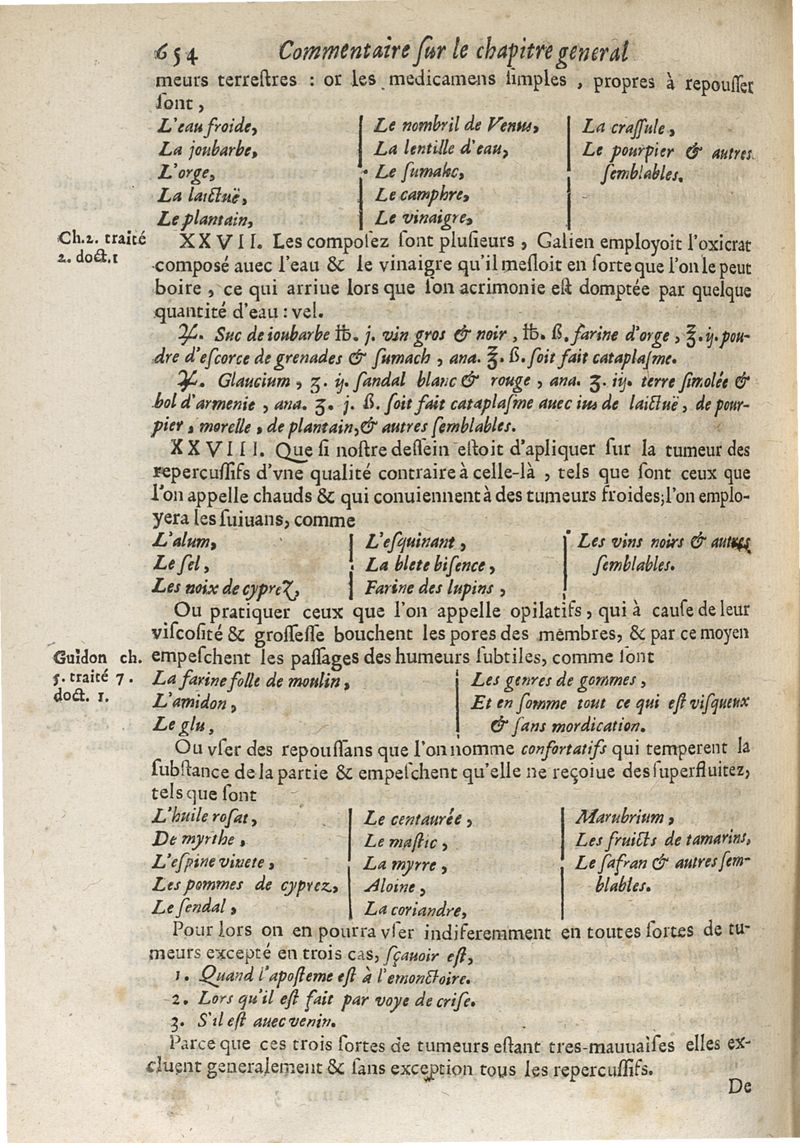 654 Commentaire ſur le chapitre general
meurs terreſtres : or les medicamens ſimples , propres à repouſſer
ſont ,
L'eau froide, | Le nombril de Venus, | La craſſule ,
La joubarbe, | La lentille d'eau, | Le pourpier & autres
L'orge, | Le ſumahc, | ſemblables.
La laictuë, | Le camphre, |
Le plantain, | Le vinaigre, |
Ch.2. traité
2. doct.1
XXVII. Les compoſez ſont pluſieurs , Galien employoit l'oxicrat
compoſé auec l'eau & le vinaigre qu'il meſloit en ſorte que l'on le peut
boire , ce qui arriue lors que ſon acrimonie eſt domptée par quelque
quantité d'eau : vel.
♃. Suc de ioubarbe ℔. j. vin gros & noir , ℔. ß. farine d'orge , ℥. ij. pou-
dre d'eſcorce de grenades & ſumach , ana. ℥. ß. ſoit fait cataplaſme.
♃. Glaucium , ʒ. ij. ſandal blanc & rouge , ana. ʒ. iij. terre ſimolée &
bol d'armenie , ana. ʒ. j. ß. ſoit fait cataplaſme auec ius de laictuë, de pour-
pier , morelle , de plantain, & autres ſemblables.
XXVIII. Que ſi noſtre deſſein eſtoit d'apliquer ſur la tumeur des
repercuſſifs d'vne qualité contraire à celle-là , tels que ſont ceux que
l'on appelle chauds & qui conuiennent à des tumeurs froides; l'on emplo-
yera les ſuiuans, comme
L'alum, | L'eſquinant , | Les vins noirs & autres
Le ſel, | La blete biſence , | ſemblables.
Les noix de cyprez, | Farine des lupins , |
Ou pratiquer ceux que l'on appelle opilatifs, qui à cauſe de leur
viſcoſité & groſſeſſe bouchent les pores des membres, & par ce moyen
Guidon ch.
5. traité 7.
doct. 1.
empeſchent les paſſages des humeurs ſubtiles, comme ſont
La farine folle de moulin , | Les genres de gommes ,
L'amidon , | Et en ſomme tout ce qui eſt viſqueux
Le glu , | & ſans mordication.
Ou vſer des repouſſans que l'on nomme confortatifs qui temperent la
ſubſtance de la partie & empeſchent qu'elle ne reçoiue des ſuperfluitez,
tels que ſont
L'huile roſat, | Le centaurée , | Marubrium ,
De myrthe , | Le maſtic , | Les fruicts de tamarins,
L'eſpine vinete , | La myrre , | Le ſafran & autres ſem-
Les pommes de cyprez, | Aloine , | blables.
Le ſendal , | La coriandre, |
Pour lors on en pourra vſer indiferemment en toutes ſortes de tu-
meurs excepté en trois cas, ſçauoir eſt,
1. Quand l'apoſteme eſt à l'emonctoire.
2. Lors qu'il eſt fait par voye de criſe.
3. S'il eſt auec venin.
Parce que ces trois ſortes de tumeurs eſtant tres-mauuaiſes elles ex-
cluent generalement & ſans exception tous les repercuſſifs.
De